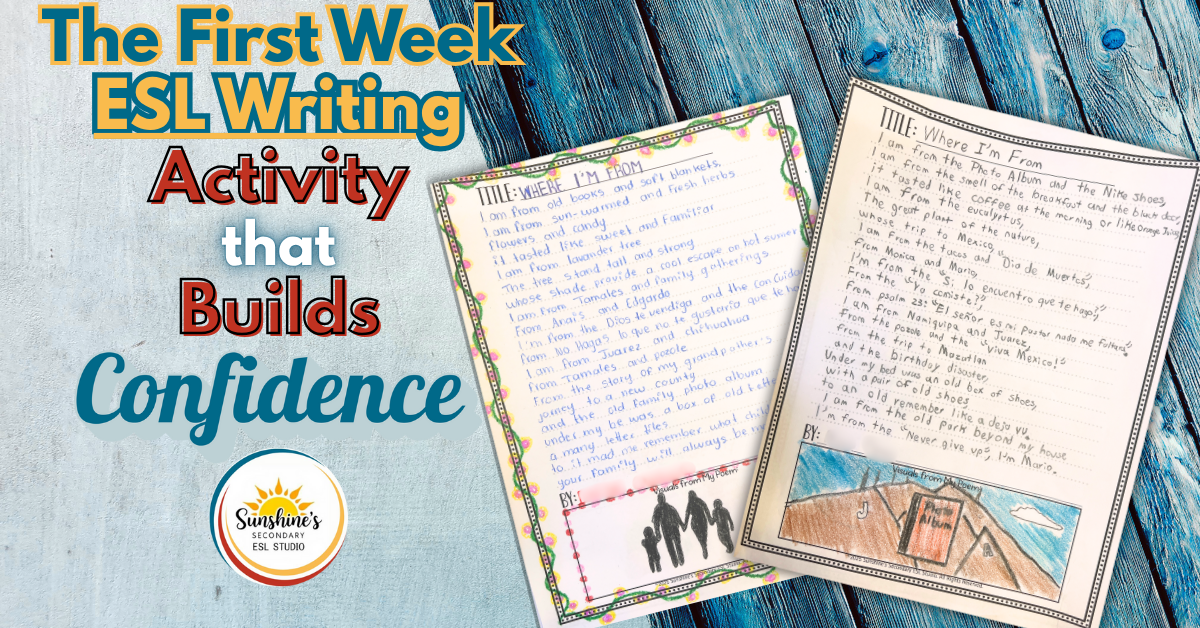 The First Week
ESL Writing
Activity
that
Builds
Confidence
Sunshine's
SECONDARY
ESL STUDIO
TITLE: WHERE I'M FROM
I am from old books and soft blankets,
I am from sun-warmed and fresh herbs
flowers and candy
it tasted like sweet and familiar
I am from lavander tree
The tree stand tall and strong
whose shade provide a cool escape on hot sumer
I am From Tamales and family gatherings
From Anais and Edgardo
I'm From the Dios te vendiga and the con cuidado
From No Hagas lo que no te gustaria que te
I am From Juarez and chihuahua
From Tamales and pozole
From the story of my grandpather's
jorney to a new country
and the old family photo album
under my be was a box of old
a many letter files
to it mad me remember what
your family will always be
BY:
Visuals from My Poem
TITLE: Where I'm From
I am from the Photo Album and the Nike shoes,
I am from the smell of the breakfust and the black door,
It tasted like coffee at the morning or like orange
I am from the eucalyptus,
The great plant of the nature,
whose trip to Mexico,
I am from the tacos and "Dia de Muertos",
from Monica and Mario,
I'm from the "Si lo encuentro que te hago",
From the "Ya comiste?"
From psalm 23: "El señor es mi pastor nada me faltara"
I am from Namiquipa and Juarez,
From the pozole and the "viva Mexico!"
from the trip to Mazatlan
and the birthday disaster,
Under my bed was an old box of shoes,
with a pair of old shoes
to an old remember like a deja vu
I am from the old park beyond my house
I'm from the "Never give up", I'm Mario.
BY:
Visuals from My Poem
Photo
Album